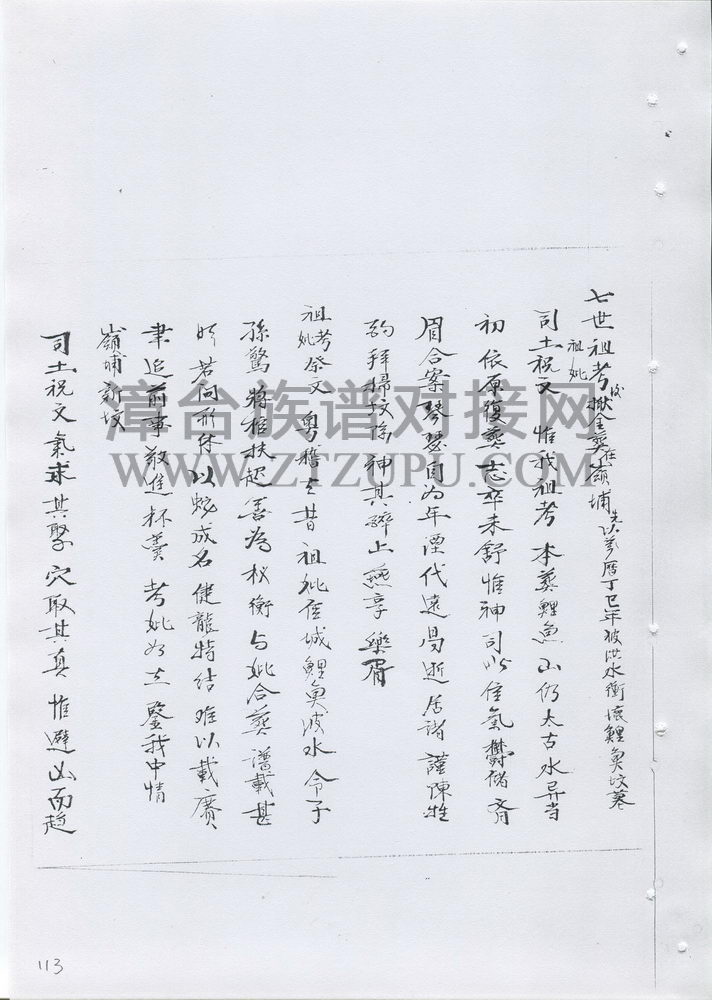 七世祖考妣 全葬在嶺埔 萬曆丁巳年被洪水衝壞鯉魚坟墓
司土祝文 惟我祖考 本葬鯉魚山仍太古水异当
初依原復葬志卒未舒惟神司以佳氣鬱儲齊
眉合案琴瑟 为年湮代遠 逝居諸謹陳牲
酌拜掃坟 神其醉止燕享樂胥
祖考妣祭文 粤稽之昔祖妣 城鯉魚波水令子
孫驚將棺扶起 善為 衡与妣合葬譜載甚
明若何形体以蛇成名健龍特结难以載賡
聿追前事敬進杯羹 考妣 鑒我中情
嶺埔新坟
司土祝文氣求其聚穴取其真惟避凶而趋
漳台族谱对接网
WWW.ZTZUPU.COM
113